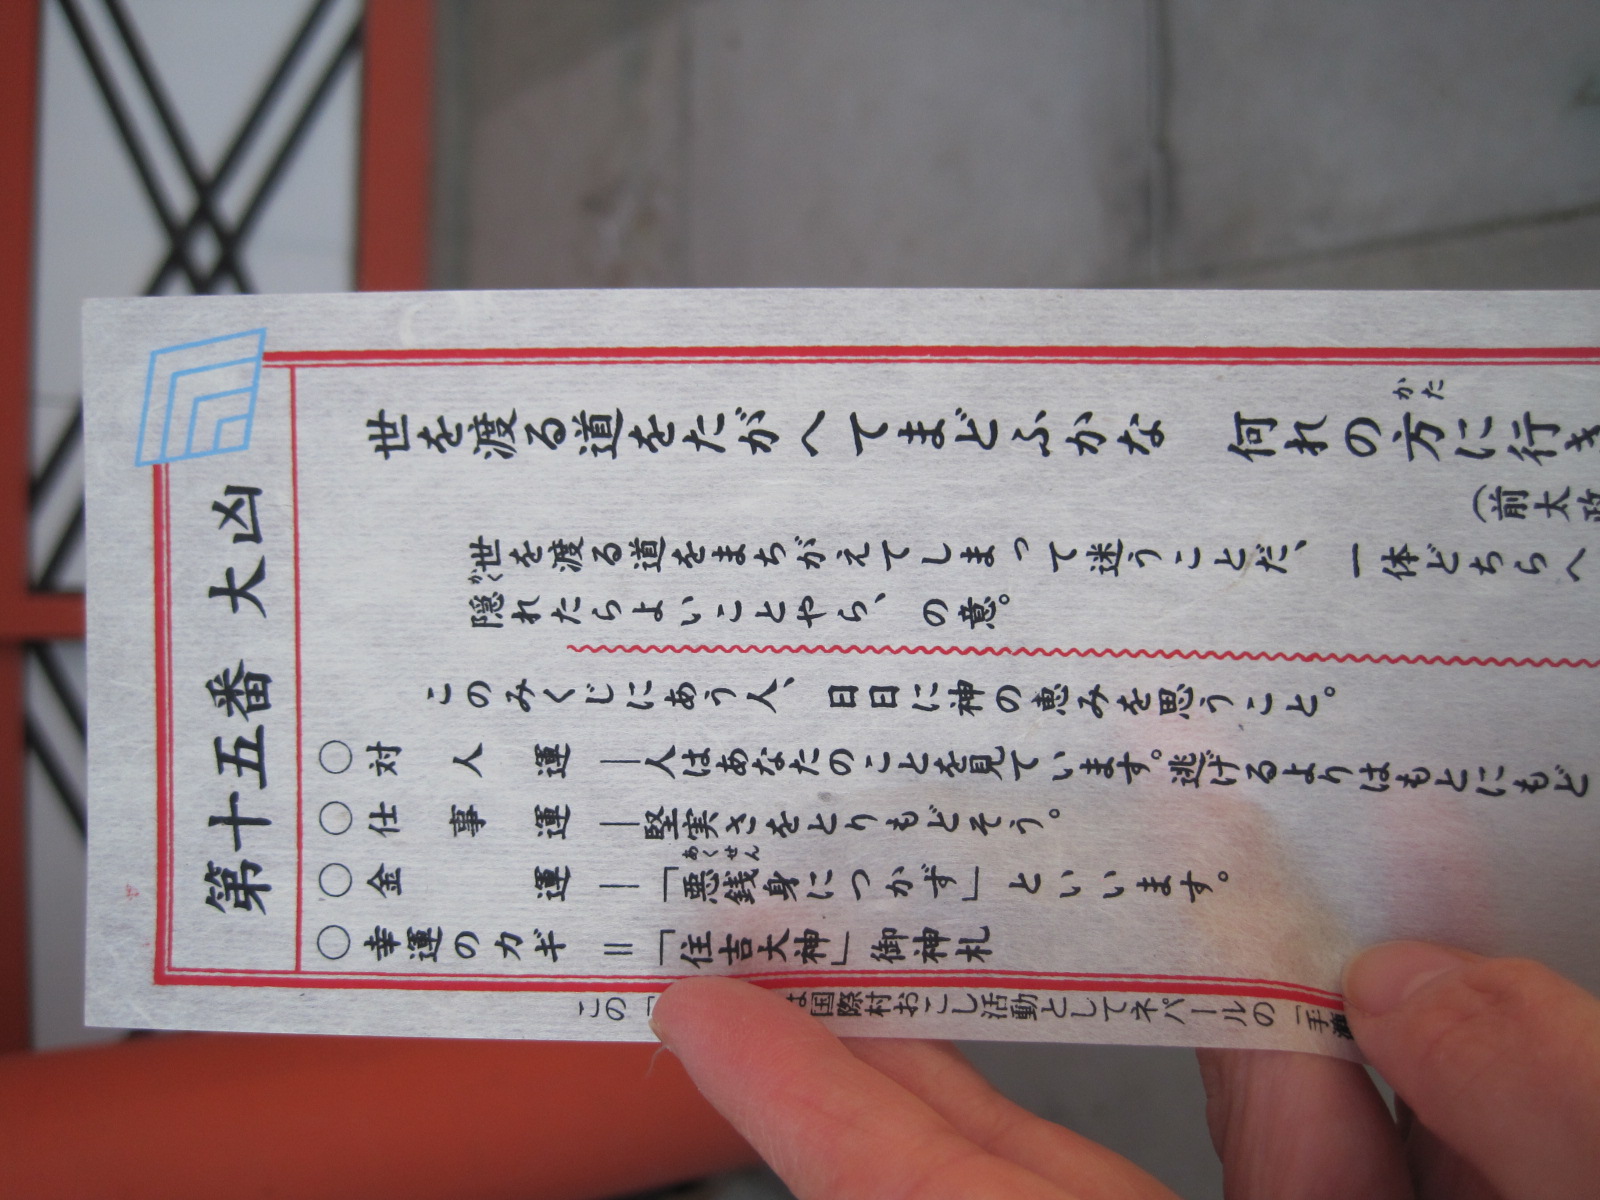 第十五番 大凶
世を渡る道をたがへてまどふかな 何れの方に行き
かた
(前太政
世を渡る道をまちがえてしまって迷うことだ、一体どちらへ
かく
隠れたらよいことやら、の意。
このみくじにあう人、日日に神の恵みを思うこと。
○対人運―人はあなたのことを見ています。逃げるよりはもとにもど
○仕事運―堅実さをとりもどそう。
○金運―「悪銭身につかず」といいます。
あくせん
○幸運のカギ=「住吉大神」御神札
この「
は国際村おこし活動としてネパールの「手漉